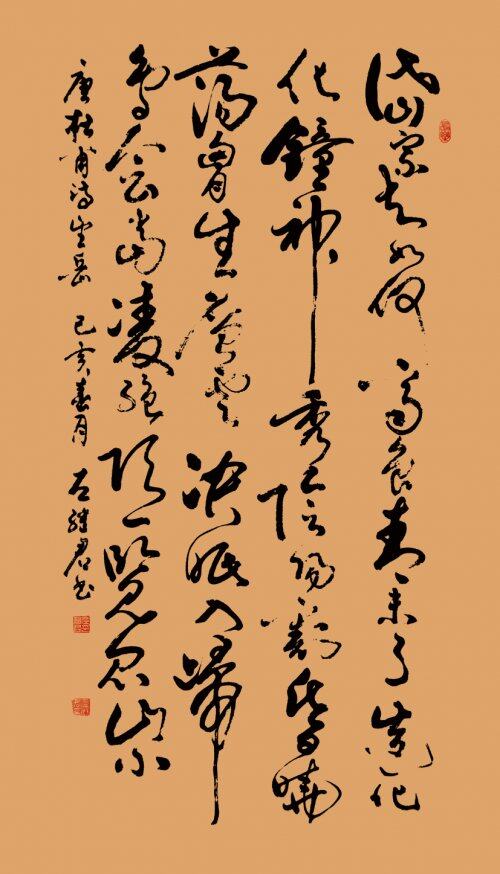 岱宗夫如何齊魯青未了造化
化鐘神秀陰陽割昏曉
蕩胸生層雲決眦入歸
鳥會當凌絕頂一覽眾山小
唐杜甫诗望岳 己亥春月 左继君书